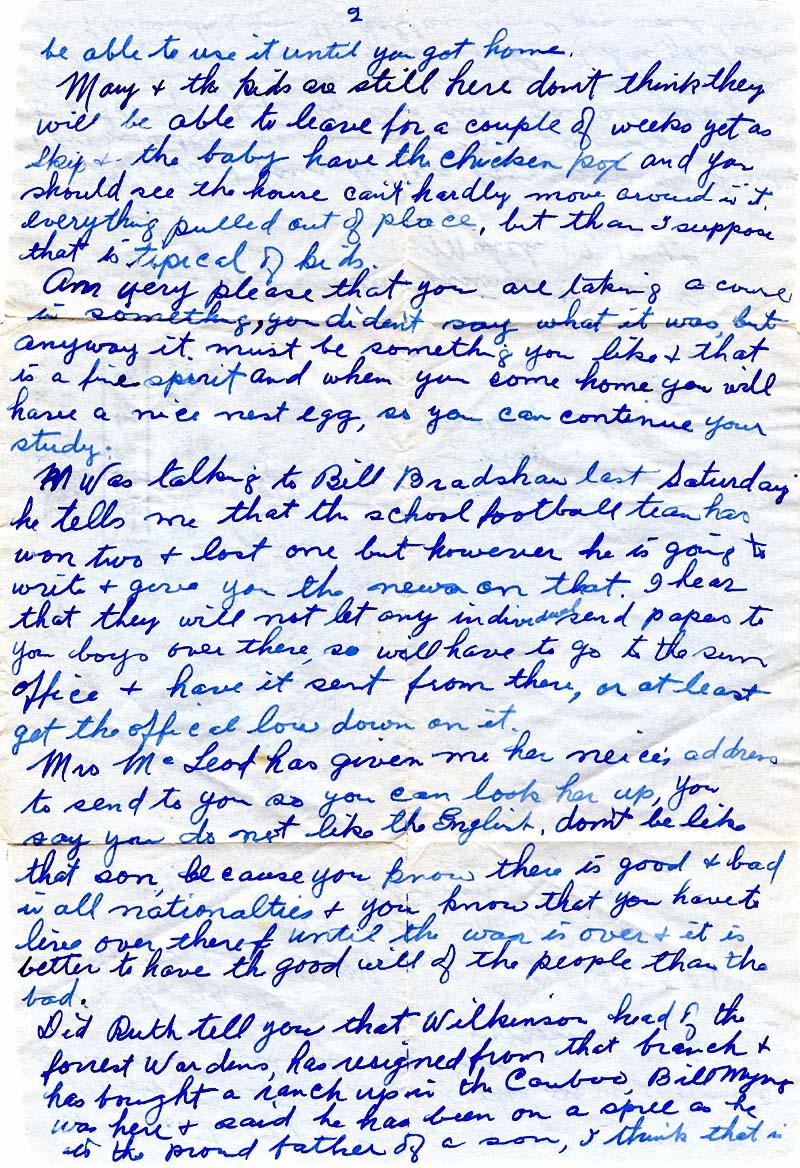 2
be able to use it until you got home.
Mary & the kids are still here don't think they
will be able to leave for a couple of weeks yet as
Skip & the baby have the chicken pox and you
should see the house can't hardly move around in it.
everything pulled out of place, but than I suppose
that is tipical of kids.
Am very please that you are taking a course
in something, you did'ent say what it was, but
anyway it must be something you like & that
is a fine spirit and when you come home you will
have a nice nest egg, so you can continue your
study.
Was talking to Bill Bradshaw last Saturday
he tells me that the school football team has
won two & lost one but however he is going to
write & give you the news on that. I hear
that they will not let any individual send papers to
you boys over there, so will have to go to the sun
office & have it sent from there, or at least
get the offical low down on it.
Mrs McLeod has given me her neice's address
to send to you so you can look her up, you
say you do not like the English, don't be like
that son, because you know there is good & bad
in all nationalties & you know that you have to
live over there until the war is over & it is
better to have the good will of the people than the
bad.
Did Ruth tell you that Wilkinson head of the
forrest Wardens, has resigned from that branch &
has bought a ranch up in the Cariboo, Bill
was here & said he has been on a spree as he
is the proud father of a son, I think that is